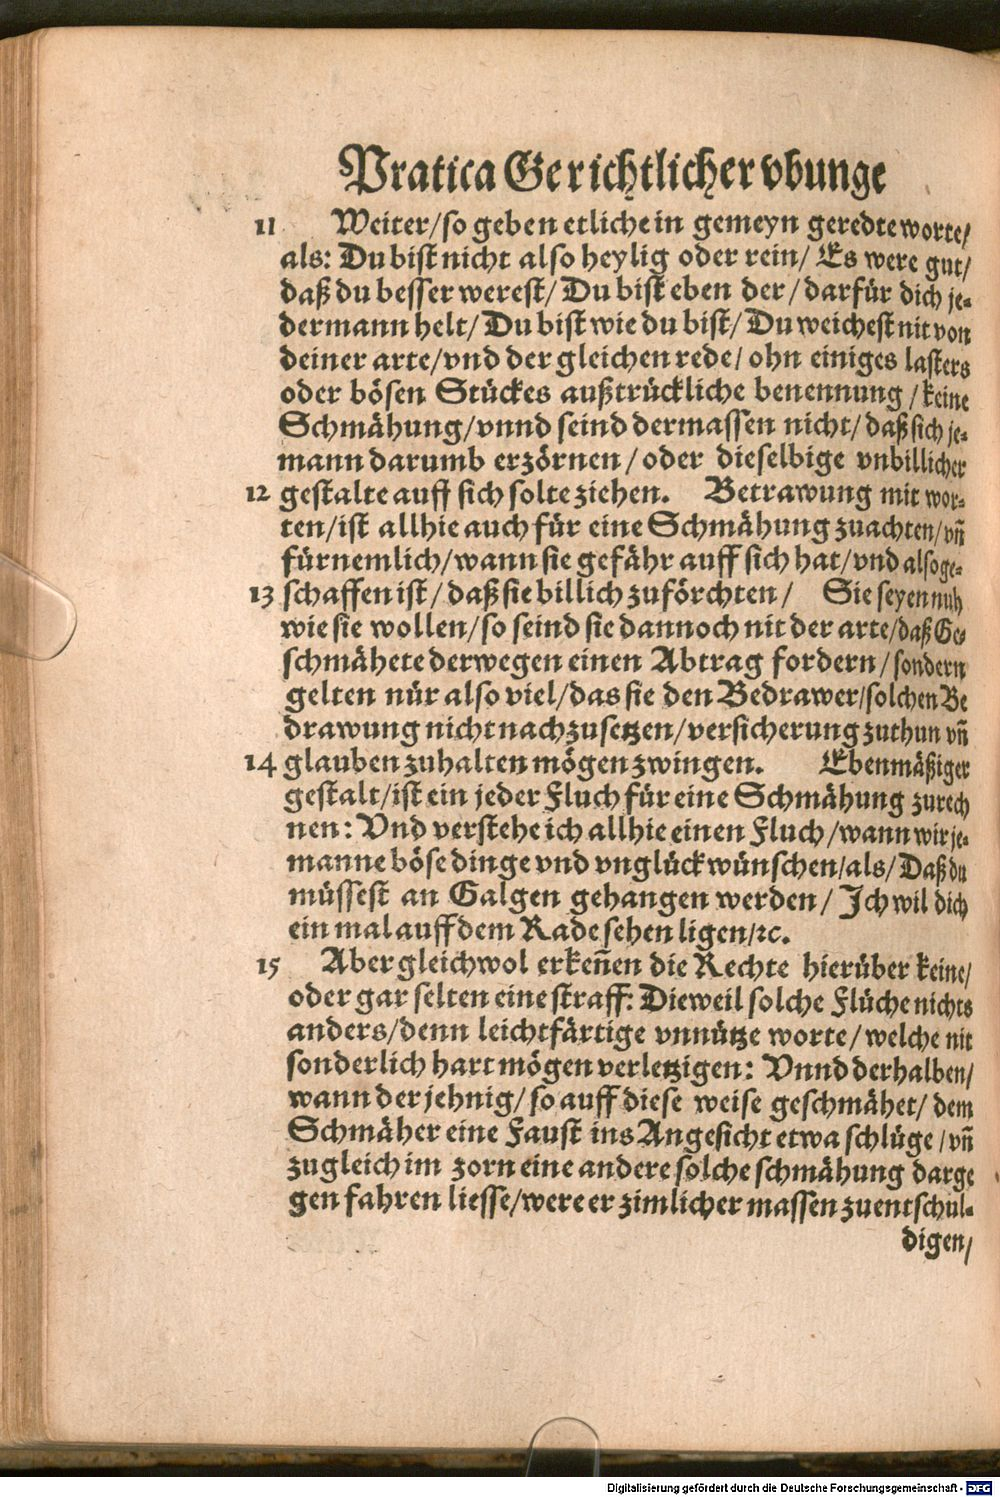 Pratica Gerichtlicher vbunge
11 Weiter/so geben etliche in gemeyn geredte worte/
als: Du bist nicht also heylig oder rein/ Es were gut/
daß du besser werest/ Du bist eben der/ darfür dich je-
dermann helt/ Du bist wie du bist/ Du weichest nit von
deiner arte/vnd der gleichen rede/ ohn einiges lasters
oder bösen Stückes außtrückliche benennung/keine
Schmähung/vnnd seind dermassen nicht/ daß sich je-
mann darumb erzörnen/oder dieselbige vnbillicher
12 gestalte auff sich solte ziehen. Betrawung mit wor-
ten/ist allhie auch für eine Schmähung zuachten/vñ
fürnemlich/wann sie gefähr auff sich hat/vnd also ge-
13 schaffen ist/ daß sie billich zuförchten/ Sie seyen nuh
wie sie wollen/so seind sie dannoch nit der arte/daß Ge-
schmähete derwegen einen Abtrag fordern/sondern
gelten nür also viel/das sie den Bedrawer/solchen Be
drawung nicht nachzusetzen/versicherung zuthun vñ
14 glauben zuhalten mögen zwingen. Ebenmäßiger
gestalt/ist ein jeder Fluch für eine Schmähung zurech
nen: Vnd verstehe ich allhie einen Fluch/wann wir je-
manne böse dinge vnd vnglück wünschen/als/ Daß du
müssest an Galgen gehangen werden/ Ich wil dich
ein mal auff dem Rade sehen ligen/ꝛc.
15 Aber gleichwol erkeñen die Rechte hierüber keine/
oder gar selten eine straff: Dieweil solche Flüche nichts
anders/denn leichtfärtige vnnütze worte/welche nit
sonderlich hart mögen verletzigen: Vnnd derhalben/
wann der jehnig/so auff diese weise geschmähet/ dem
Schmäher eine Faust ins Angesicht etwa schlüge/vñ
zugleich im zorn eine andere solche schmähung darge
gen fahren liesse/were er zimlicher massen zuentschul-
digen/
Digitalisierung gefördert durch die Deutsche Forschungsgemeinschaft - DFG